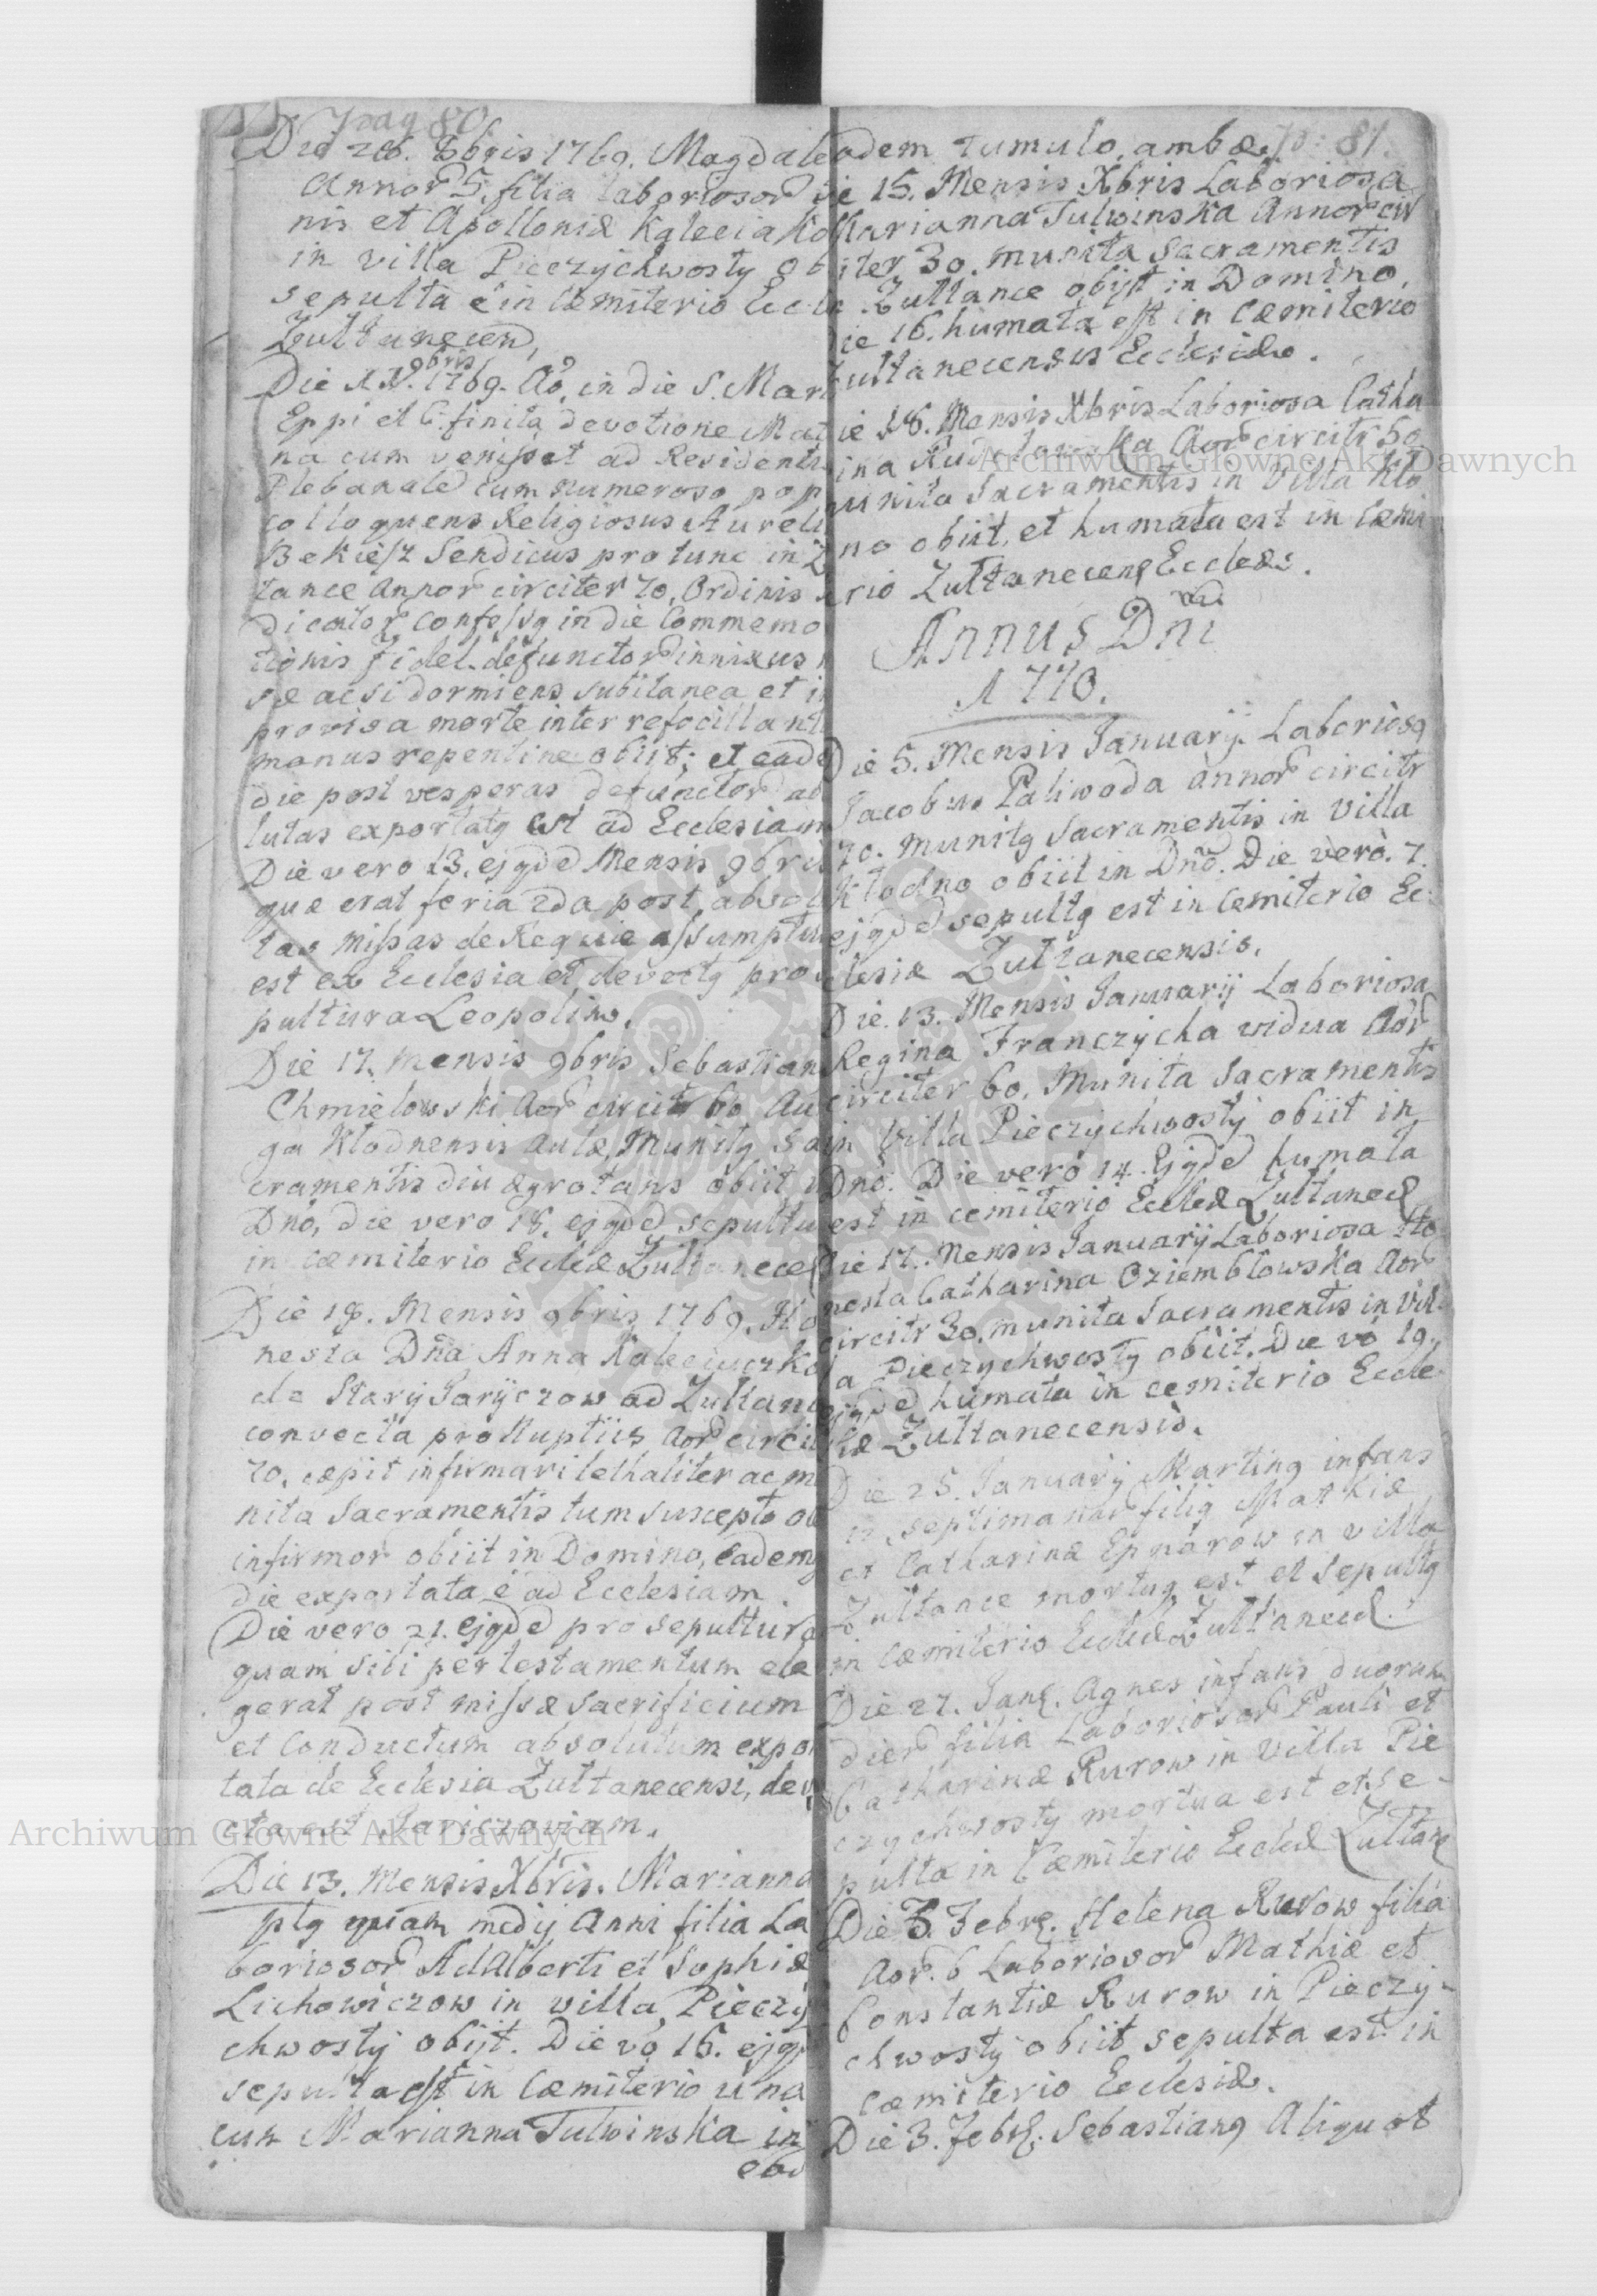 pag 80
Die 26. 8bris 1769. Magdale
Annor 5. filia laboriosor
nis et Apolloniæ
in villa Pieczychwosty ob
sepulta e in Cœmiterio Eccle
Zultanecen,
Die XI. 9bris 1769. Ao, in die S. Mar
Eppi et C. finita devotione Mat
na cum venisset ad Residenti
Plebanale cum numeroso pop
colloquens Religiosus Aureli
Bekiesz Sendicus pro tunc in Z
tance Annor circiter 70, Ordinis
dicator confessg in die Commemo
tionis fidel. defunctor innixus
sæ ac si dormiens subitanea et i
provisa morte inter refocillant
manus repentine obijt; et eade
die post vesperas defunctor ab
lutas exportatg est ad Ecclesiam
Die vero 13. ejgde Mensis 9bris
quæ erat feria 2da post absol
tas Missas de Requie assumptu
est ex Ecclesia et devectg pro
pultura Leopolim.
Die 17. Mensis 9bris Sebastian
Chmielowski Aor circitr 60 Au
ga Kłodnensis aulæ, Munitg Sa
cramentis diu ægrotans obiit i
Dno, die vero 18. ejgde sepultu
in cæmiterio Eccliæ Zultanece
Die 18. Mensis 9bris 1769. Ho
nesta Dna Anna Kaleciuczko
de Stary Jaryczow ad Zultan
convecta pro Nuptiis Aor circit
20, cæpit infirmari lethaliter ac m
nita Sacramentis tum suscepto ol
infirmor obiit in Domino, eadem
die exportata e ad Ecclesiam.
Die vero 21. ejgde pro sepultura
quam sibi per testamentum ele
gerat post missæ sacrificium
et Conductum absolutum expor
tata de Ecclesia Zultanecensi, dev
cta est Jariczoviam.
Die 13. Mensis Xbris. Marianna
plg quam medij Anni filia La
boriosor Adalberti et Sophiæ
Lichowiczow in villa Pieczy
chwosty obijt. Die vo 16. ejg
sepulta est in Cœmiterio una
cum Marianna Tulwinska in
eod
p: 81.
odem tumulo, ambæ.
ie 15. Mensis Xbris Laboriosa
Marianna Tulwinska Annor cir
iter 30. munita Sacramentis
Zultance obijt in Domino,
ie 16. humata est in Cæmiterio
Zultanecensis Ecclesiæ.
ie 18. Mensis Xbris Laboriosa Catha
ina Aor circitr 50
unita Sacramentis in Villa Kło
no obiit, et humata est in Cæmi
rio Zultanecens Eccleæ.
Annus Dni
1770.
Die 5. Mensis Januarij Laboriosg
Jacobus Paliwoda annor circitr
70. Munitg Sacramentis in Villa
Kłodno obiit in Dno. Die vero. 7.
ejgde sepultg est in Cemiterio Ec
clesiæ Zultanecensis.
Die 13. Mensis Januarij Laboriosa
Regina Franczycha vidua Aor
circiter 60. Munita Sacramentis
in Villa Pieczychwosty obiit in
Dno. Die vero 14. Ejgde humata
est in cemiterio Eccleæ Zultanece
Die 17. Mensis Januarij Laboriosa Ho
nesta Catharina Oziembłowska Aor
circitr 30. munita Sacramentis in Vil
a Pieczychwosty obiit. Die vo 19.
ejgde humata in cemiterio Eccle
iæ Zultanecensis.
Die 25. Januarij Marting infans
septimanar filig Mathiæ
et Catharinæ in villa
Zultance mortug est et sepultg
in cæmiterio Eccliæ Zultanece.
Die 27. Jan. Agnes infans duorum
dier filia Laboriosor Pauli et
Catharinæ Rurow in Villa Pie
czychwosty mortua est et se-
pulta in Cæmiterio Eccliæ Zultan
Die 3. Febr. Helena Rurow filia
Aor. 6 Laboriosor Mathiæ et
Constantiæ Rurow in Pieczy-
chwosty obiit sepulta est in
cæmiterio Ecclesiæ.
Die 3. Febr. Sebastiang Aliquot
Archiwum Główne Akt Dawnych
Archiwum Główne Akt Dawnych